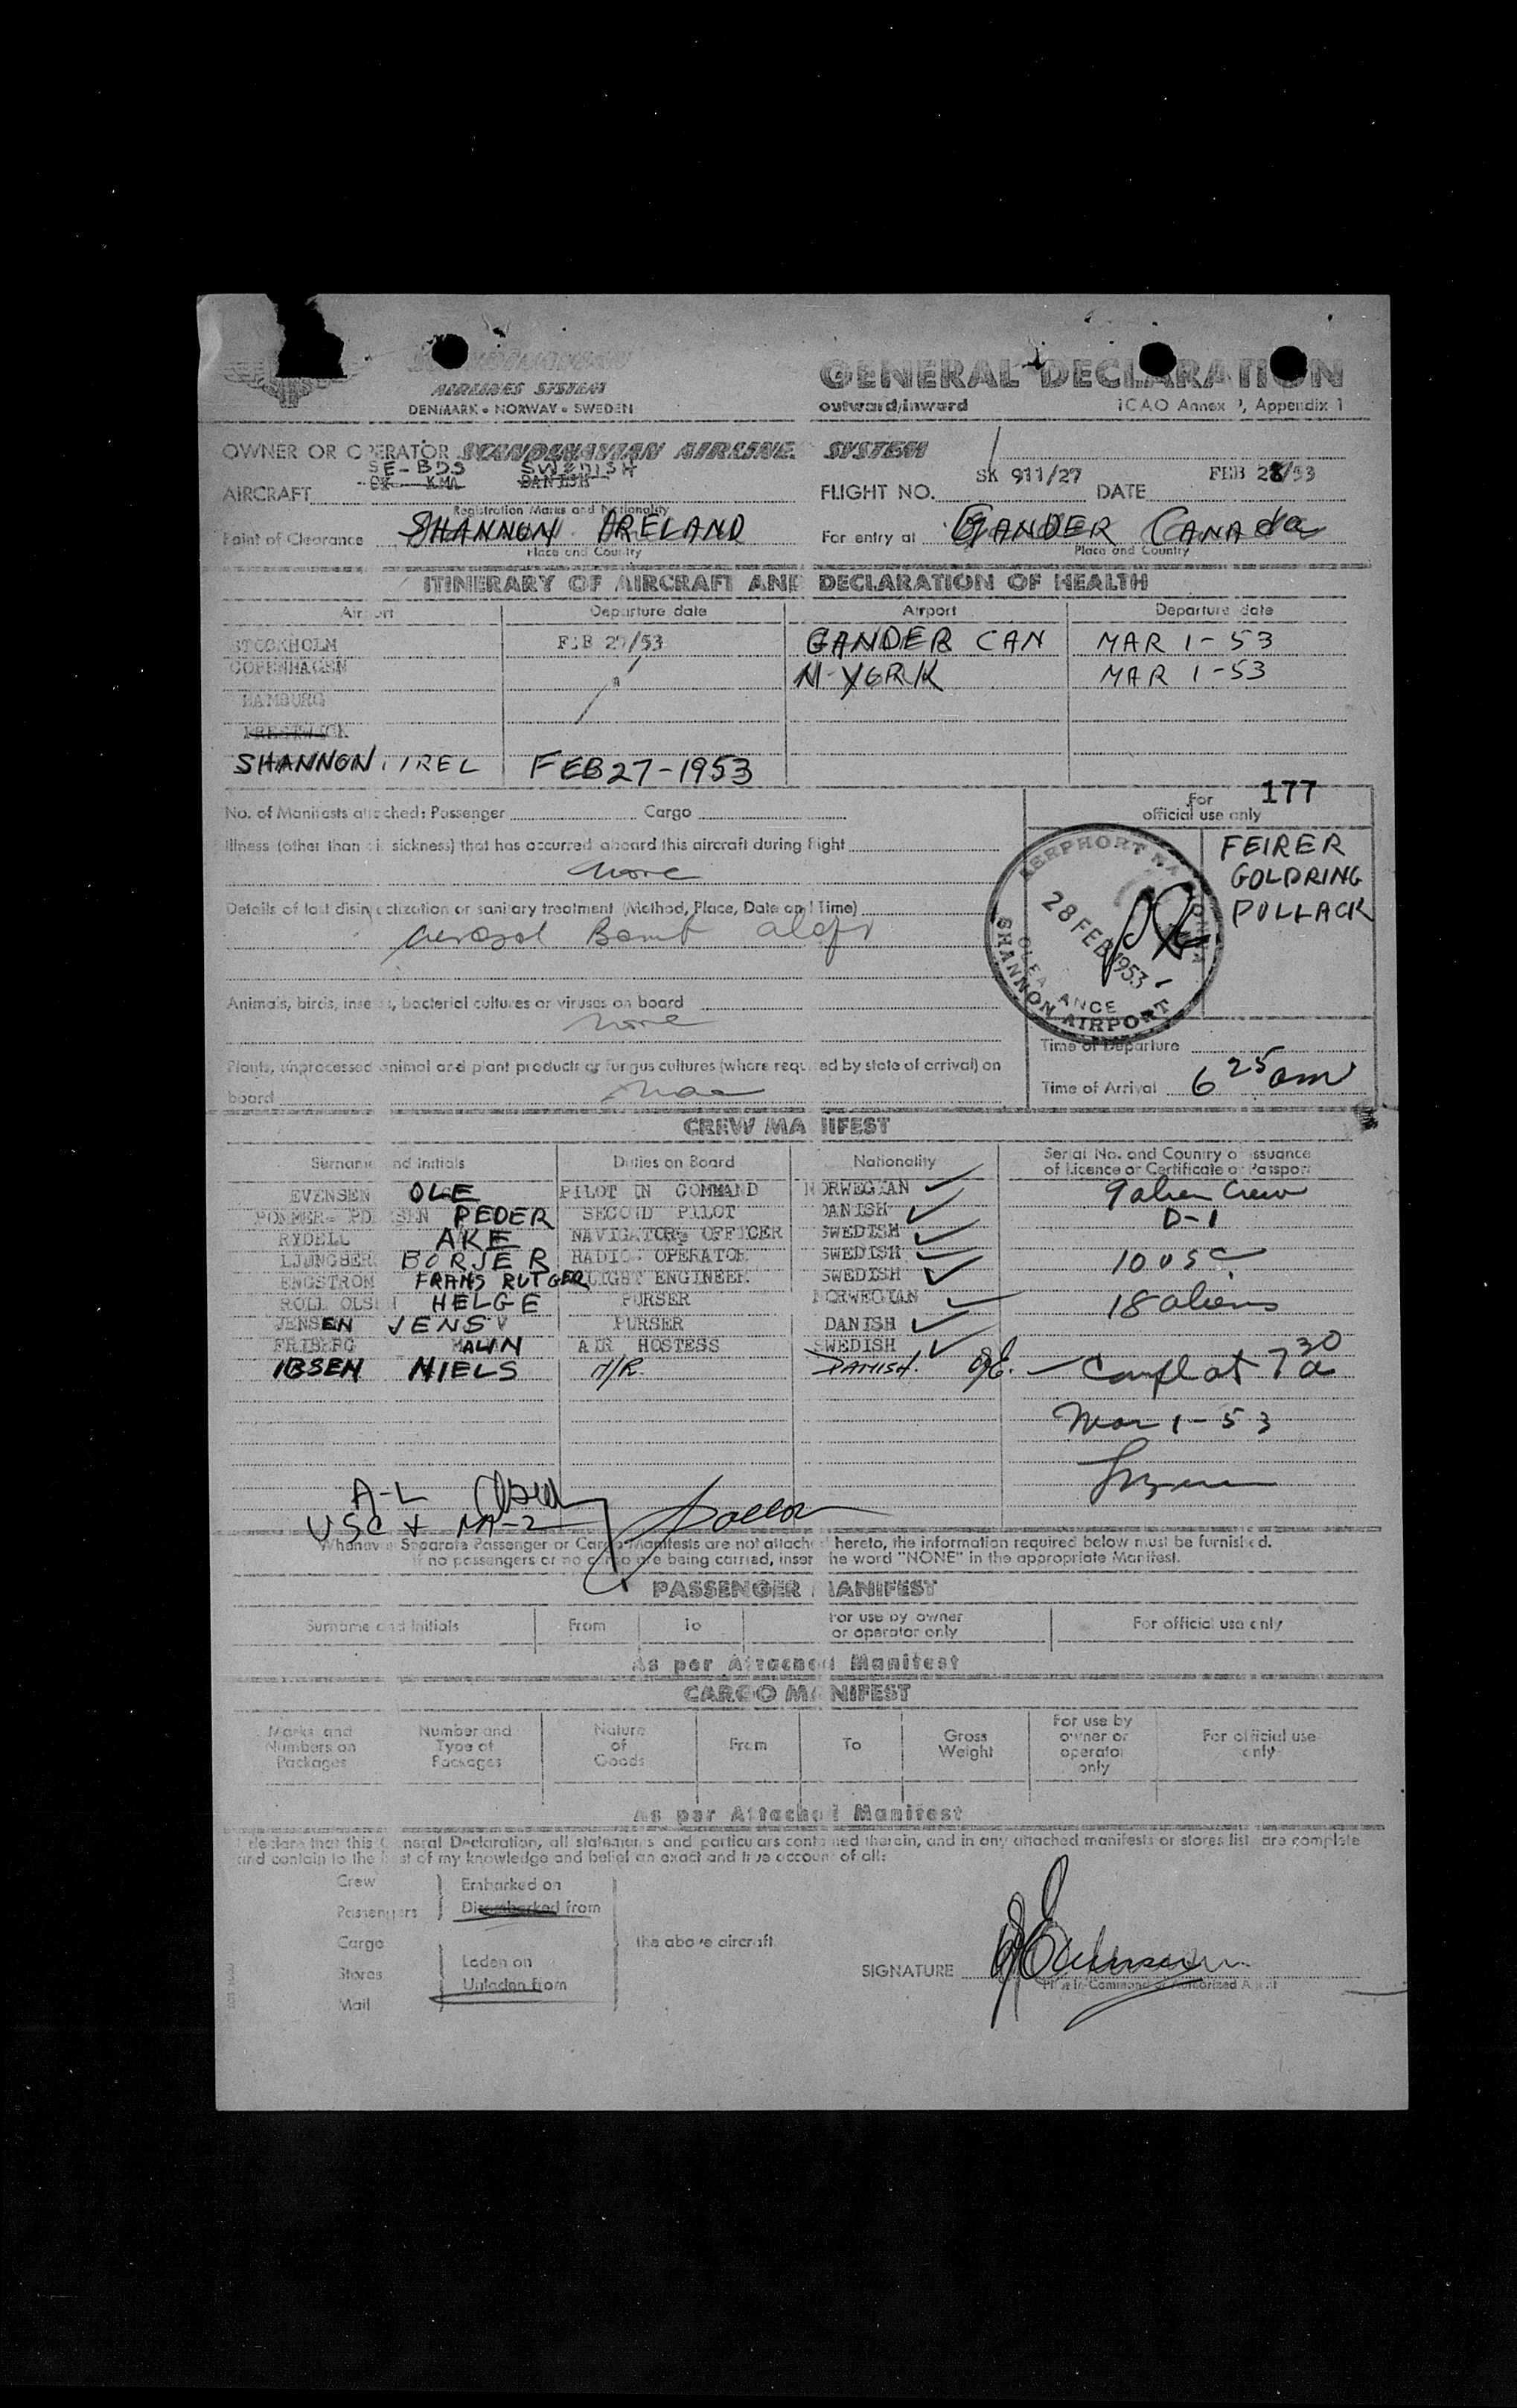 AIRLINES SYSTEM
DENMARK • NORWAY • SWEDEN
GENERAL DECLARATION
outward/inward ICAO Annex 9, Appendix 1
OWNER OR OPERATOR SCANDINAVIAN AIRLINES SYSTEM
SE-BDS SWEDISH
AIRCRAFT KMA DANISH
Registration Marks and Nationality
FLIGHT NO. SK 911/27 DATE FEB 28/53
Point of Clearance SHANNON IRELAND
Place and Country
For entry at GANDER CANAda
Place and Country
ITINERARY OF AIRCRAFT AND DECLARATION OF HEALTH
Airport Departure date Airport Departure date
STOCKHOLM FEB 27/53 GANDER CAN MAR 1-53
COPENHAGEN " N-YORK MAR 1-53
HAMBURG
PRESTWICK
SHANNON IREL FEB 27-1953
No. of Manifests attached: Passenger Cargo
For official use only 177
FEIRER
GOLDRING
POLLACK
Illness (other than air sickness) that has occurred aboard this aircraft during flight
none
Details of last disinsectization or sanitary treatment (Method, Place, Date and Time)
aerosol Bomb aloft
28 FEB 1953
CLEARANCE
SHANNON AIRPORT
Animals, birds, insects, bacterial cultures or viruses on board
none
Plants, unprocessed animal and plant products or fungus cultures (where required by state of arrival) on
board none
Time of Departure
Time of Arrival 6 25 am
CREW MANIFEST
Surname and Initials Duties on Board Nationality Serial No. and Country of issuance
of Licence or Certificate or Passport
EVENSEN OLE PILOT IN COMMAND NORWEGIAN 9 alien Crew
PEDER SECOND PILOT DANISH D-1
RYDELL AKE NAVIGATOR OFFICER SWEDISH
LJUNGBERG BORJE R RADIO OPERATOR SWEDISH 10 USC
ENGSTROM FRANS RUTGER FLIGHT ENGINEER SWEDISH
ROLL OLSEN HELGE PURSER NORWEGIAN 18 aliens
JENSEN JENS V PURSER DANISH
FRIBERG MALIN AIR HOSTESS SWEDISH
IBSEN NIELS N/R. DANISH. Compl at 7 30 a
Mar 1-53
A-L
USC + NA-2
Whenever Separate Passenger or Cargo Manifests are not attached hereto, the information required below must be furnished.
If no passengers or no cargo are being carried, insert the word "NONE" in the appropriate Manifest.
PASSENGER MANIFEST
Surname and Initials From To For use by owner or operator only For official use only
As per Attached Manifest
CARGO MANIFEST
Marks and Numbers on Packages Number and Type of Packages Nature of Goods From To Gross Weight For use by owner or operator only For official use only
As per Attached Manifest
I declare that this General Declaration, all statements and particulars contained therein, and in any attached manifests or stores list are complete
and contain to the best of my knowledge and belief an exact and true account of all:
Crew Embarked on
Passengers Disembarked from
Cargo the above aircraft
Stores Laden on
Unladen from
Mail
SIGNATURE
Pilot in Command or Authorized Agent